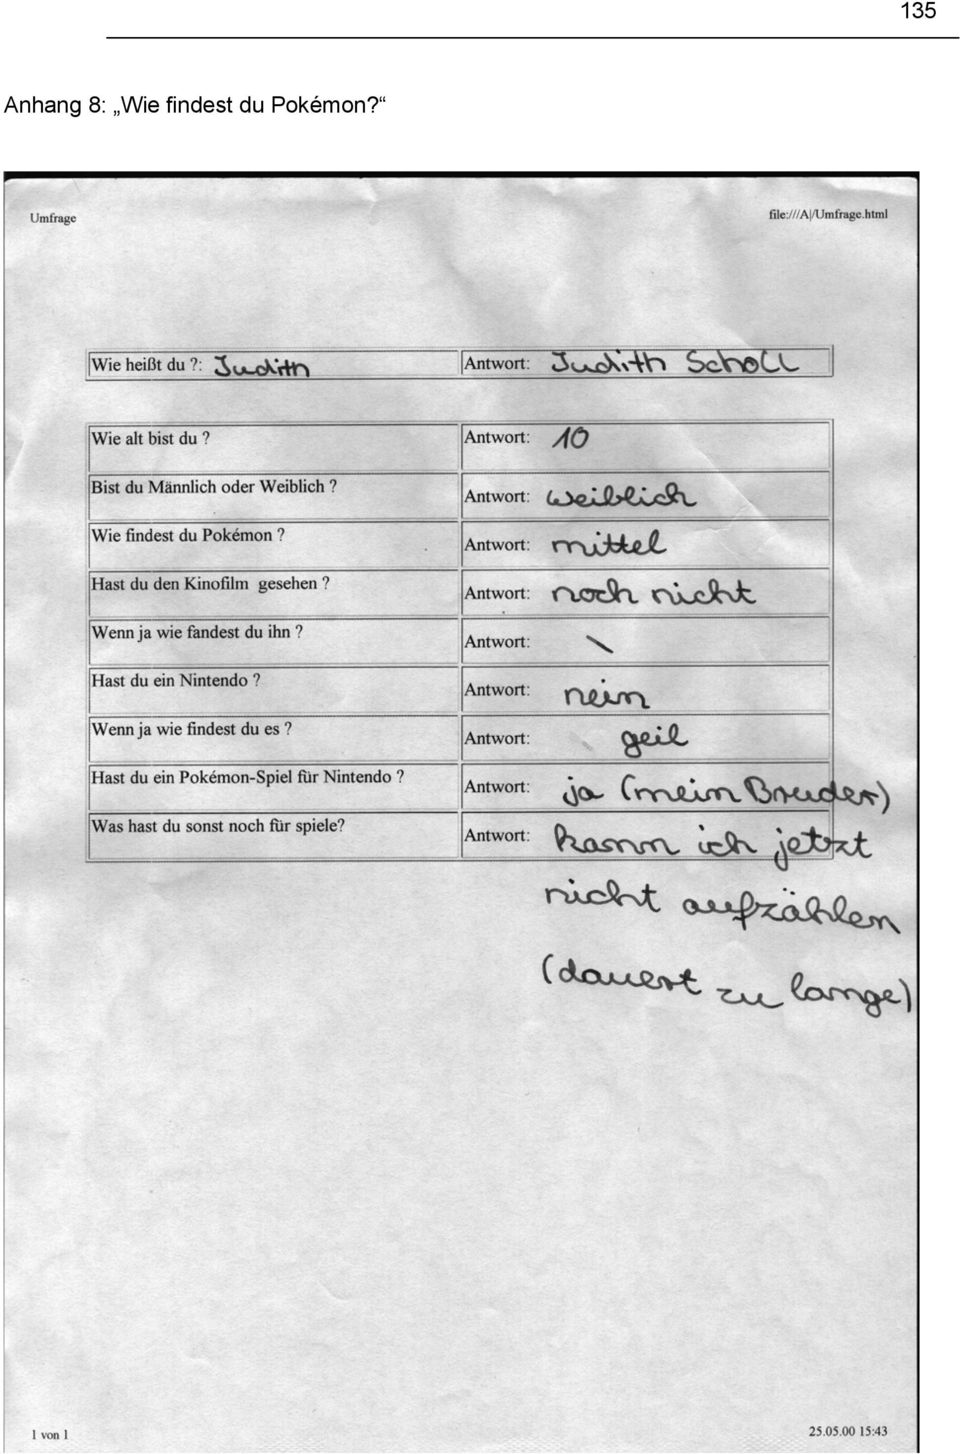 135
Anhang 8: „Wie findest du Pokémon?“
Umfrage file:///A|/Umfrage.html
Wie heißt du ?: Judith Antwort: Judith Scholl
Wie alt bist du ? Antwort: 10
Bist du Männlich oder Weiblich ? Antwort: weiblich
Wie findest du Pokémon ? Antwort: mittel
Hast du den Kinofilm gesehen ? Antwort: noch nicht
Wenn ja wie fandest du ihn ? Antwort: \
Hast du ein Nintendo ? Antwort: nein
Wenn ja wie findest du es ? Antwort: geil
Hast du ein Pokémon-Spiel für Nintendo ? Antwort: ja (mein Bruder)
Was hast du sonst noch für spiele? Antwort: kann ich jetzt
nicht aufzählen
(dauert zu lange)
1 von 1 25.05.00 15:43